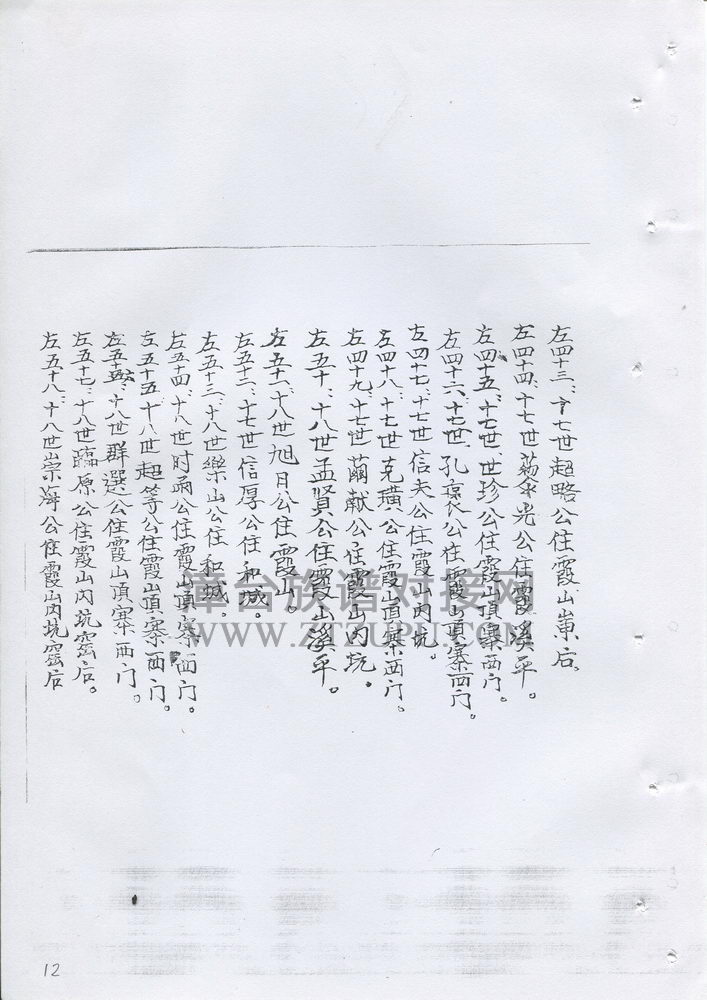 左四十三、十七世超略公住霞山黄后。
左四十四、十七世公住霞溪平。
左四十五、十七世、世珍公住霞山頂寨西门。
左四十六、十七世、孔公住霞山頂寨西门。
左四十七、十七世信夫公住霞山内坑。
左四十八、十七世克璜公住霞山頂寨西门。
左四十九、十七世獻公住霞山内坑。
左五十、十八世孟賢公住霞山溪平。
左五十一、十八世旭日公住霞山。
左五十二、十七世信厚公住和城。
左五十三、十八世樂山公住和城。
左五十四、十八世时雨公住霞山頂寨西门。
左五十五、十八世超等公住霞山頂寨西门。
左五十六、十八世群選公住霞山頂寨西门。
左五十七、十八世臨原公住霞山内坑窑后。
左五十八、十八世崇海公住霞山内坑窑后
漳台族谱对接网
WWW.ZTZUPU.COM
12